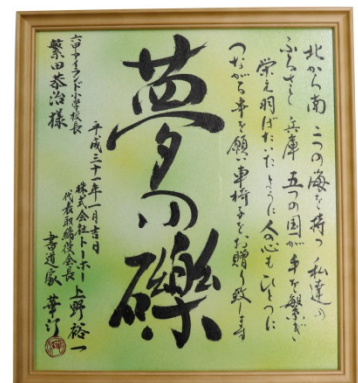 北から南 二つの海を持つ 私達の
ふるさと 兵庫 五つの国が手を繋ぎ
栄え羽ばたいたように人の心もひとつに
つながる事を願い車椅子をお贈り致します
夢の礫
平成三十一年一月吉日
株式会社トーホー
代表取締役会長 上野裕一
書道家 華汀
六甲アイランド小学校長
繁田恭治様